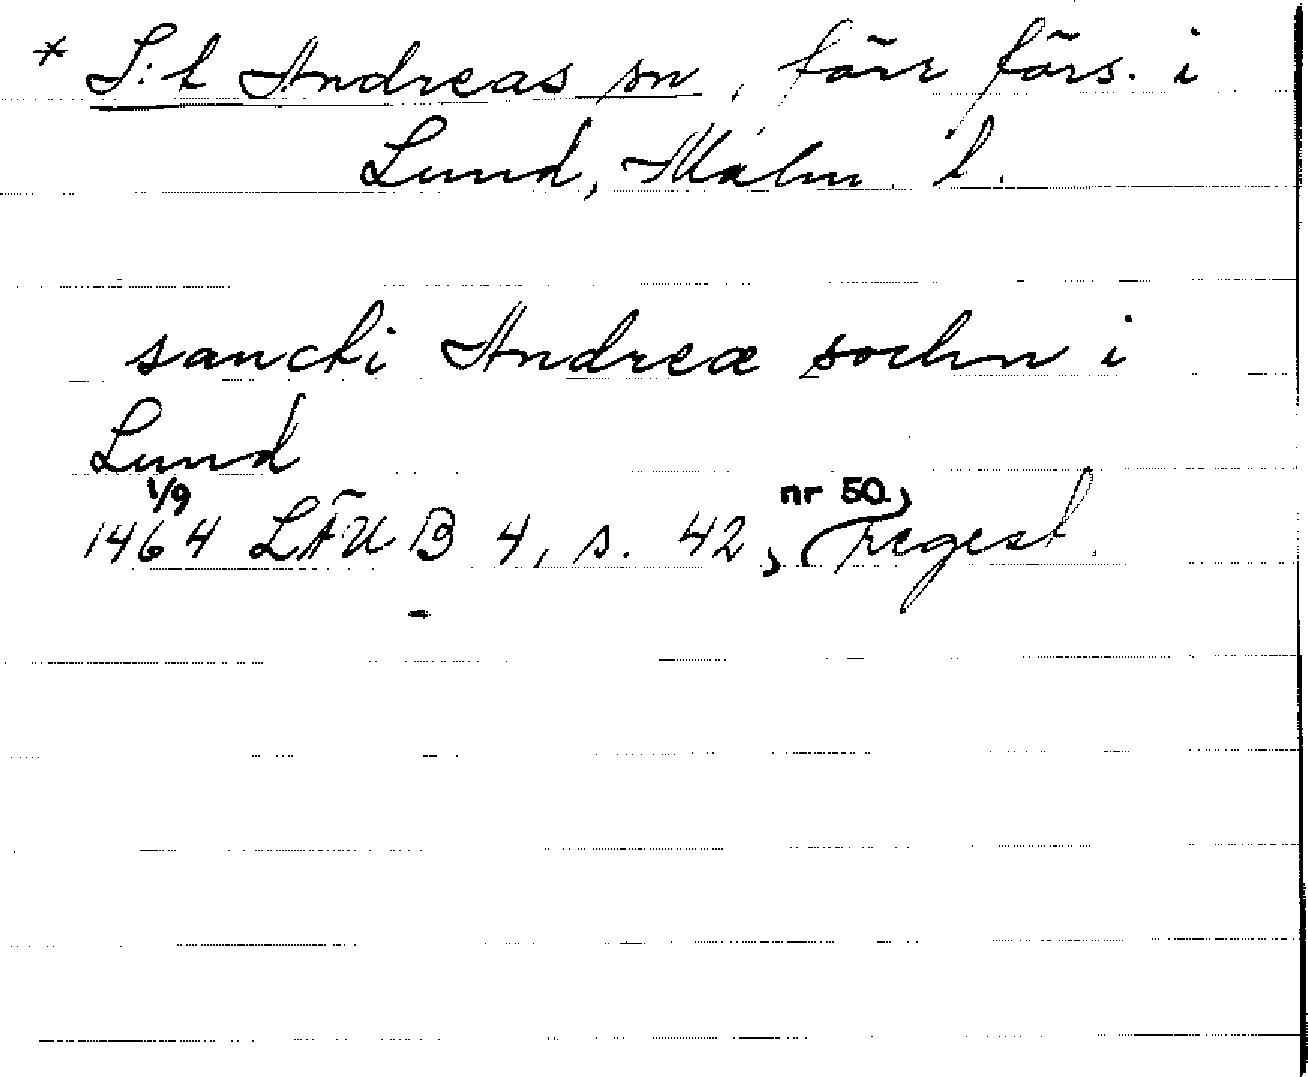 * S:t Andreas sn, förr förs. i
Lund, Malm. l.
sancti Andreæ sochn i
Lund
1/9 nr 50,
1464 LÄUB 4, s. 42, regest.